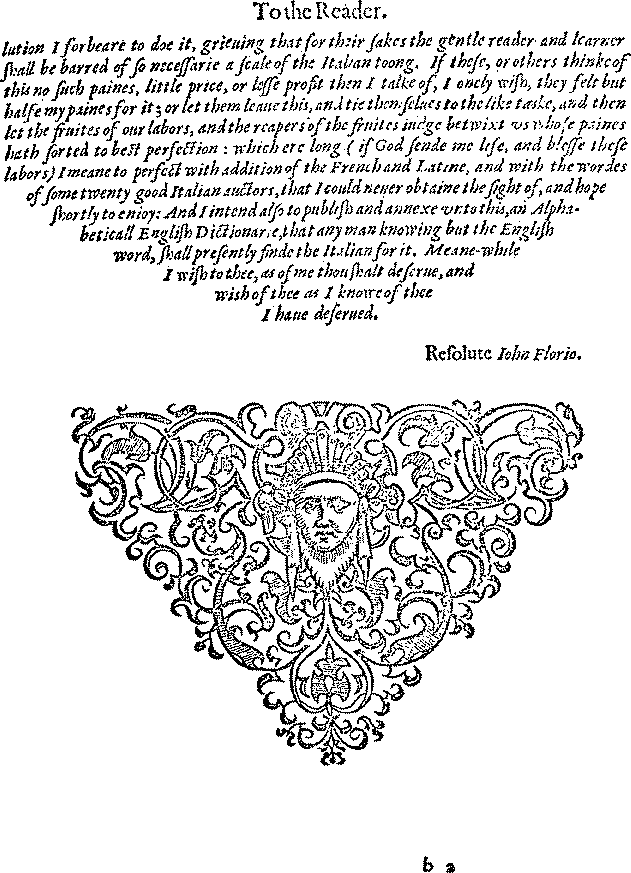 To the Reader.
lution I forbeare to doe it, grieuing that for their ſakes the gentle reader and learner
ſhall be barred of ſo neceſſarie a ſcale of the Italian toong. If theſe, or others thinke of
this no ſuch paines, little price, or leſſe profit then I talke of, I onely wiſh, they felt but
halfe my paines for it; or let them leaue this, and tie themſelues to the like taske, and then
let the fruites of our labors, and the reapers of the fruites iudge betwixt vs whoſe paines
hath ſorted to beſt perfection : which ere long ( if God ſende me life, and bleſſe theſe
labors) I meane to perfect with addition of the French and Latine, and with the wordes
of ſome twenty good Italian auctors, that I could neuer obtaine the ſight of, and hope
ſhortly to enioy: And I intend alſo to publiſh and annexe vnto this, an Alpha-
beticall Engliſh Dictionarie, that any man knowing but the Engliſh
word, ſhall preſently finde the Italian for it. Meane-while
I wiſh to thee, as of me thou ſhalt deſerue, and
wiſh of thee as I knowe of thee
I haue deſerued.
Reſolute Iohn Florio.
b 2